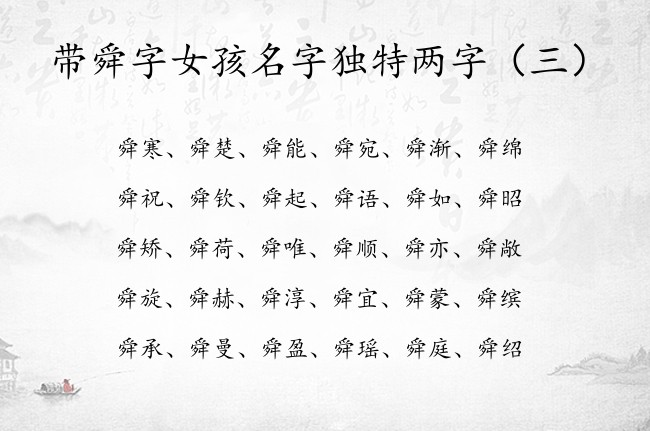 带舜字女孩名字独特两字（三）
舜寒、舜楚、舜能、舜宛、舜渐、舜绵
舜祝、舜钦、舜起、舜语、舜如、舜昭
舜矫、舜荷、舜唯、舜顺、舜亦、舜敞
舜旋、舜赫、舜淳、舜宜、舜蒙、舜缤
舜承、舜曼、舜盈、舜瑶、舜庭、舜绍